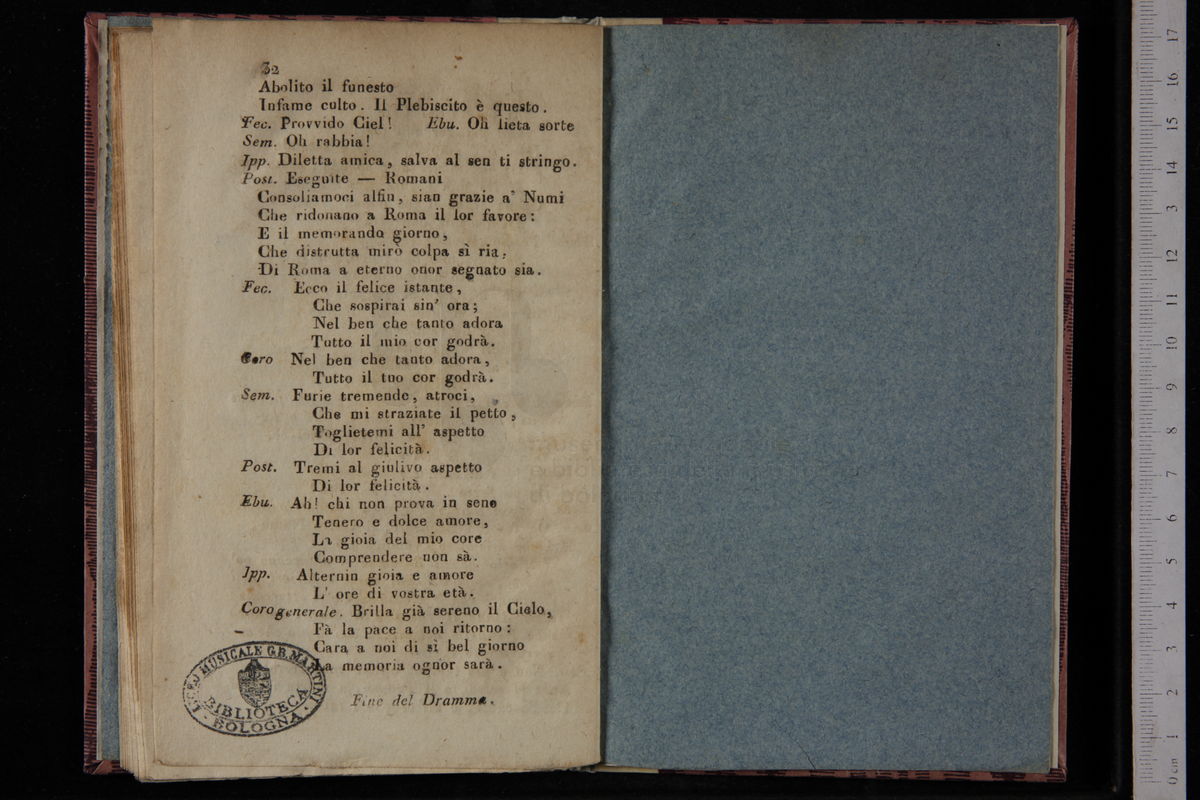 32
Abolito il funesto
Infame culto. Il Plebiscito è questo.
Fec. Provvido Ciel! Ebu. Oh lieta sorte
Sem. Oh rabbia!
Ipp. Diletta amica, salva al sen ti stringo.
Post. Eseguite — Romani
Consoliamoci alfin, sian grazie a' Numi
Che ridonano a Roma il lor favore:
E il memorando giorno,
Che distrutta mirò colpa sì ria,
Di Roma a eterno onor segnato sia.
Fec. Ecco il felice istante,
Che sospirai sin' ora;
Nel ben che tanto adora
Tutto il mio cor godrà.
Coro Nel ben che tanto adora,
Tutto il tuo cor godrà.
Sem. Furie tremende, atroci,
Che mi straziate il petto,
Toglietemi all' aspetto
Di lor felicità.
Post. Tremi al giulivo aspetto
Di lor felicità.
Ebu. Ah! chi non prova in seno
Tenero e dolce amore,
La gioia del mio core
Comprendere non sà.
Ipp. Alternin gioia e amore
L' ore di vostra età.
Coro generale. Brilla già sereno il Cielo,
Fà la pace a noi ritorno:
Cara a noi di sì bel giorno
La memoria ognor sarà.
Fine del Dramma.
LICEO MUSICALE G.B. MARTINI
BIBLIOTECA
BOLOGNA
0 cm 1 2 3 4 5 6 7 8 9 10 11 12 13 14 15 16 17